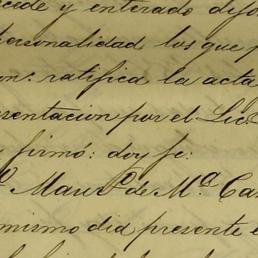 cide y enterado dijo
personalidad los que p
on: ratifica la acta
esentacion por el Lic.
y firmó: doy fe:
Maur.o de M.a Ca
mismo dia presente e